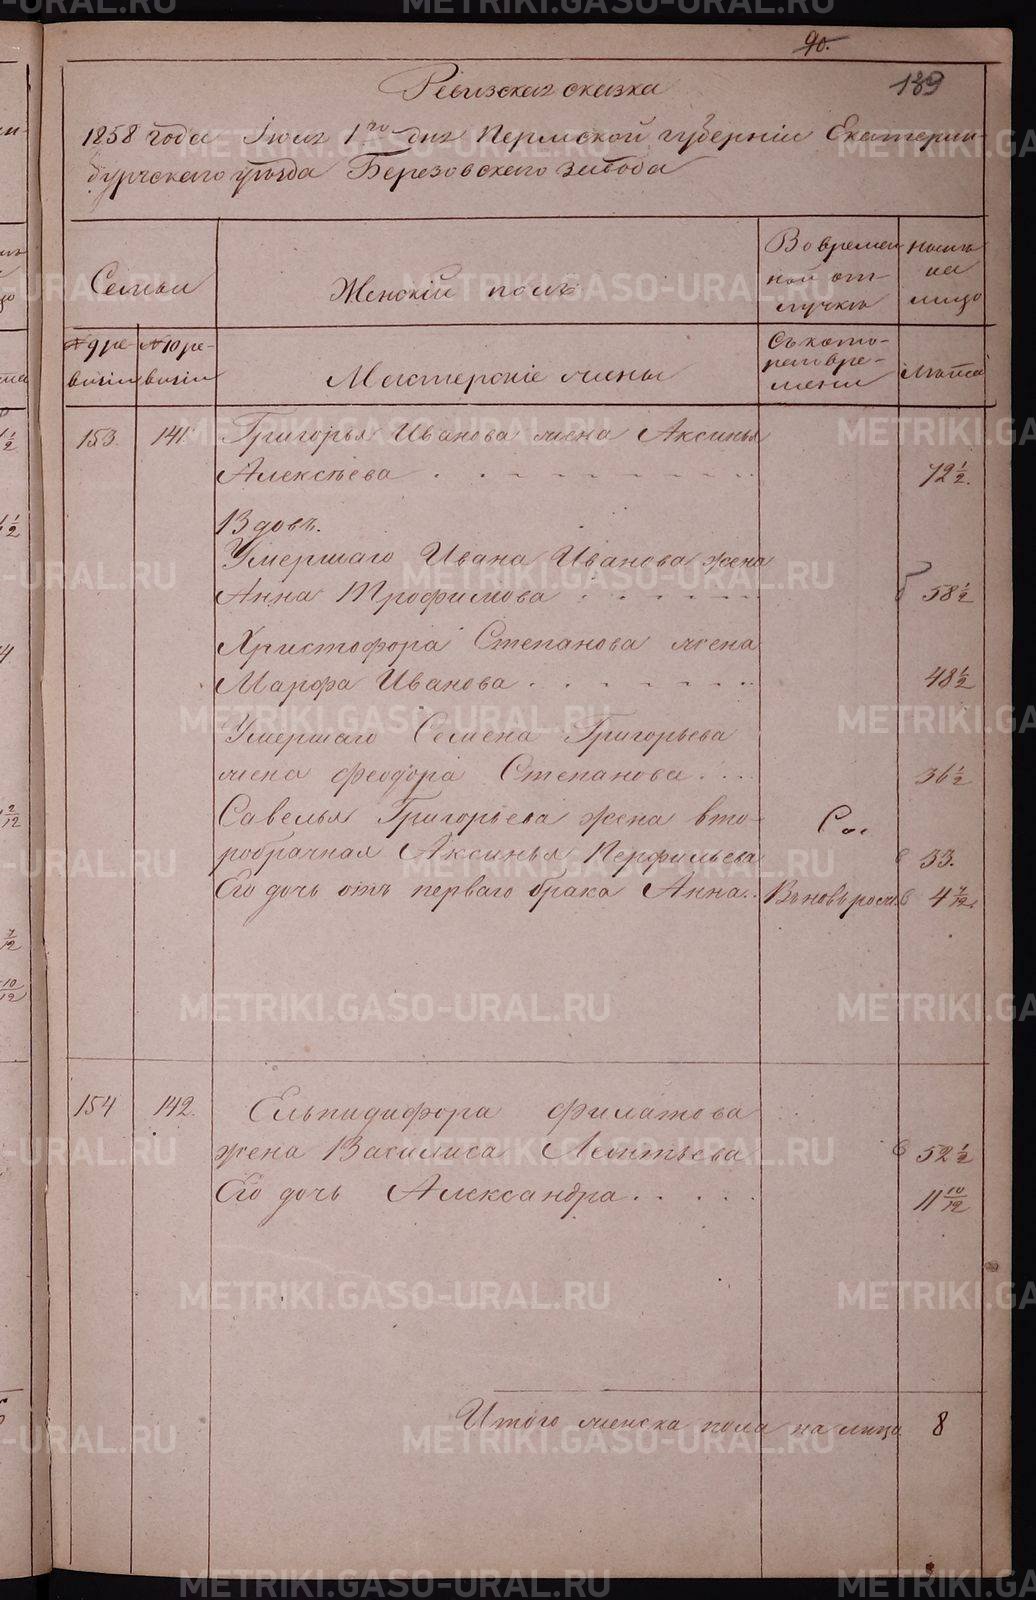 90.
139
Ревизская сказка
1858 года Іюля 1го дня Пермской губерніи Екатерин-
бургскаго уѣзда Березовскаго завода
Семьи
Женскій полъ
Во времен
ной от-
лучкѣ
Налич
на
лицо
№ 9 ре-
визіи
№ 10 ре-
визіи
Мастерскіе жены
Съ кото-
раго вре-
мени
Лѣта
153. 141. Григорья Иванова жена Аксинья
Алексѣева 72 1/2.
Вдовъ.
Умершаго Ивана Иванова жена
Анна Трофимова 58 1/2
Христофора Степанова жена
Марфа Иванова 48 1/2
Умершаго Семена Григорьева
жена Феодора Степанова 36 1/2
Савелья Григорьева жена вто-
робрачная Аксинья Перфильева 33.
Его дочь отъ перваго брака Анна 4 7/12
154 142. Ельпидифора Филатова
жена Василиса Леонтьева 52 1/2
Его дочь Александра 11 10/12
Итого женска пола на лицо 8
METRIKI.GASO-URAL.RU